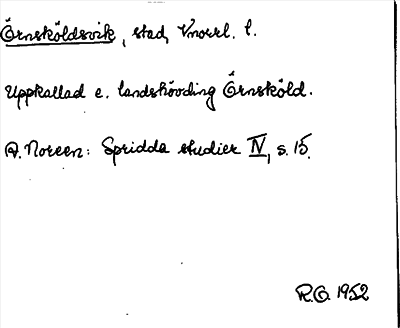 Örnsköldsvik, stad, Vnorrl. l.
Uppkallad e. landshövding Örnsköld.
A. Noreen: Spridda studier IV, s. 15.
R.O. 1952